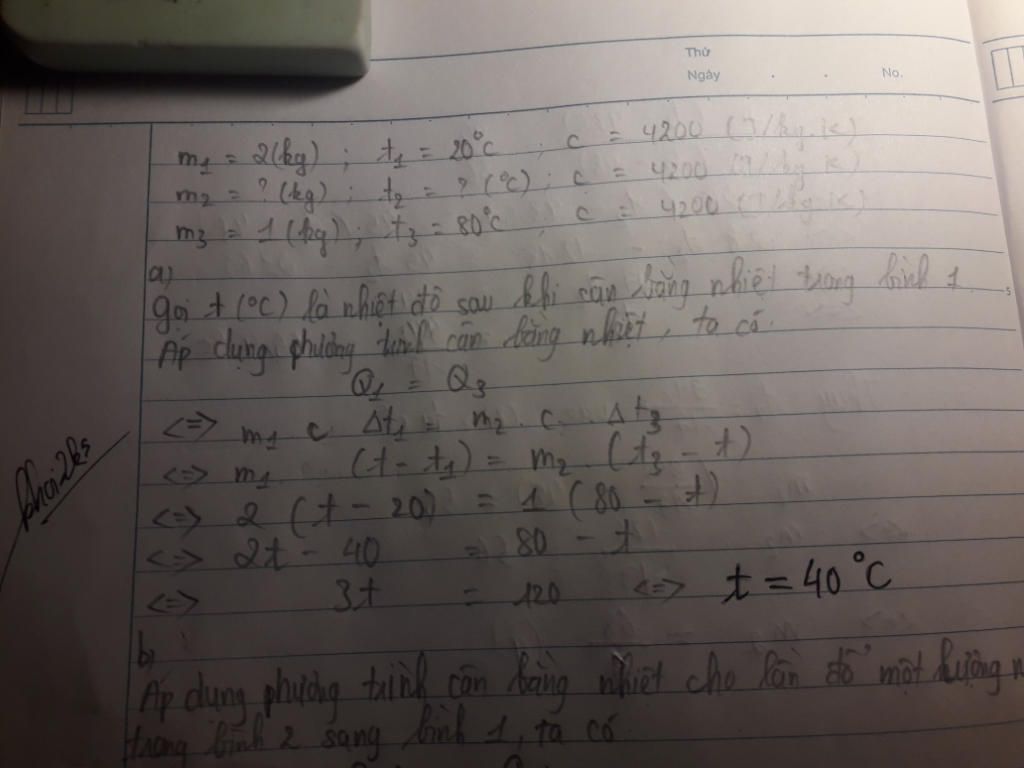 Thứ
Ngày . . No.
m1 = 2(kg) ; t1 = 20°C ; c = 4200 (J/kg.K)
m2 = ? (kg) ; t2 = ? (°C) ; c = 4200 (J/kg.K)
m3 = 1 (kg) ; t3 = 80°C ; c = 4200 (J/kg.K)
a)
Gọi t (°C) là nhiệt độ sau khi cân bằng nhiệt trong bình 1.
Áp dụng phương trình cân bằng nhiệt, ta có:
Q1 = Q3
<=> m1 c Δt1 = m2 . c . Δt3
<=> m1 . (t - t1) = m2 . (t3 - t)
<=> 2 (t - 20) = 1 (80 - t)
<=> 2t - 40 = 80 - t
<=> 3t = 120 <=> t = 40°C
khoi2k5
b)
Áp dụng phương trình cân bằng nhiệt cho lần đổ một lượng
trong bình 2 sang bình 1, ta có